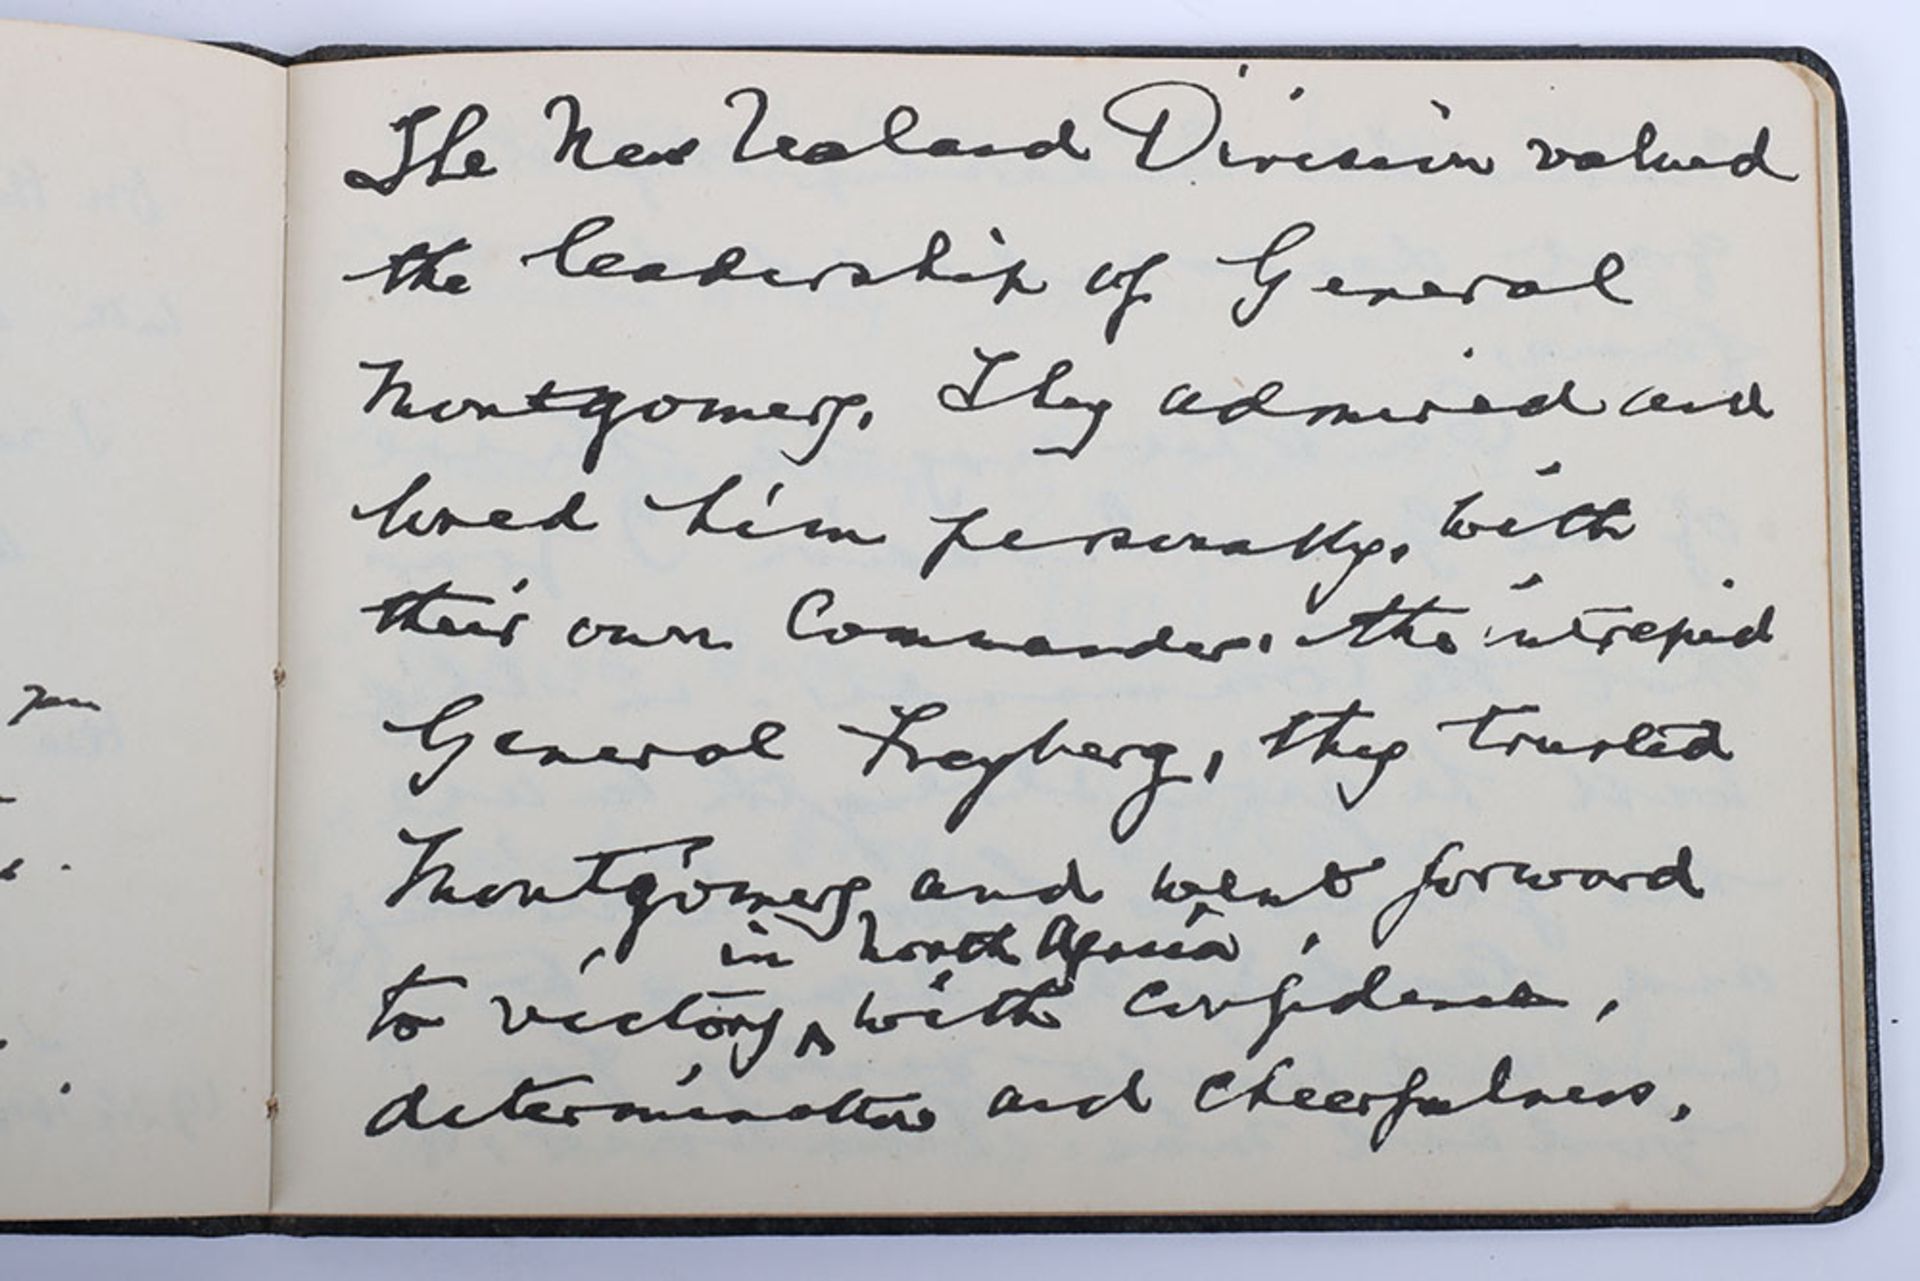 The New Zealand Division valued
the leadership of General
Montgomery. They admired and
loved him personally, with
their own Commander, the intrepid
General Freyberg, they trusted
Montgomery and went forward
in North Africa
to victory, with confidence,
determination and cheerfulness.